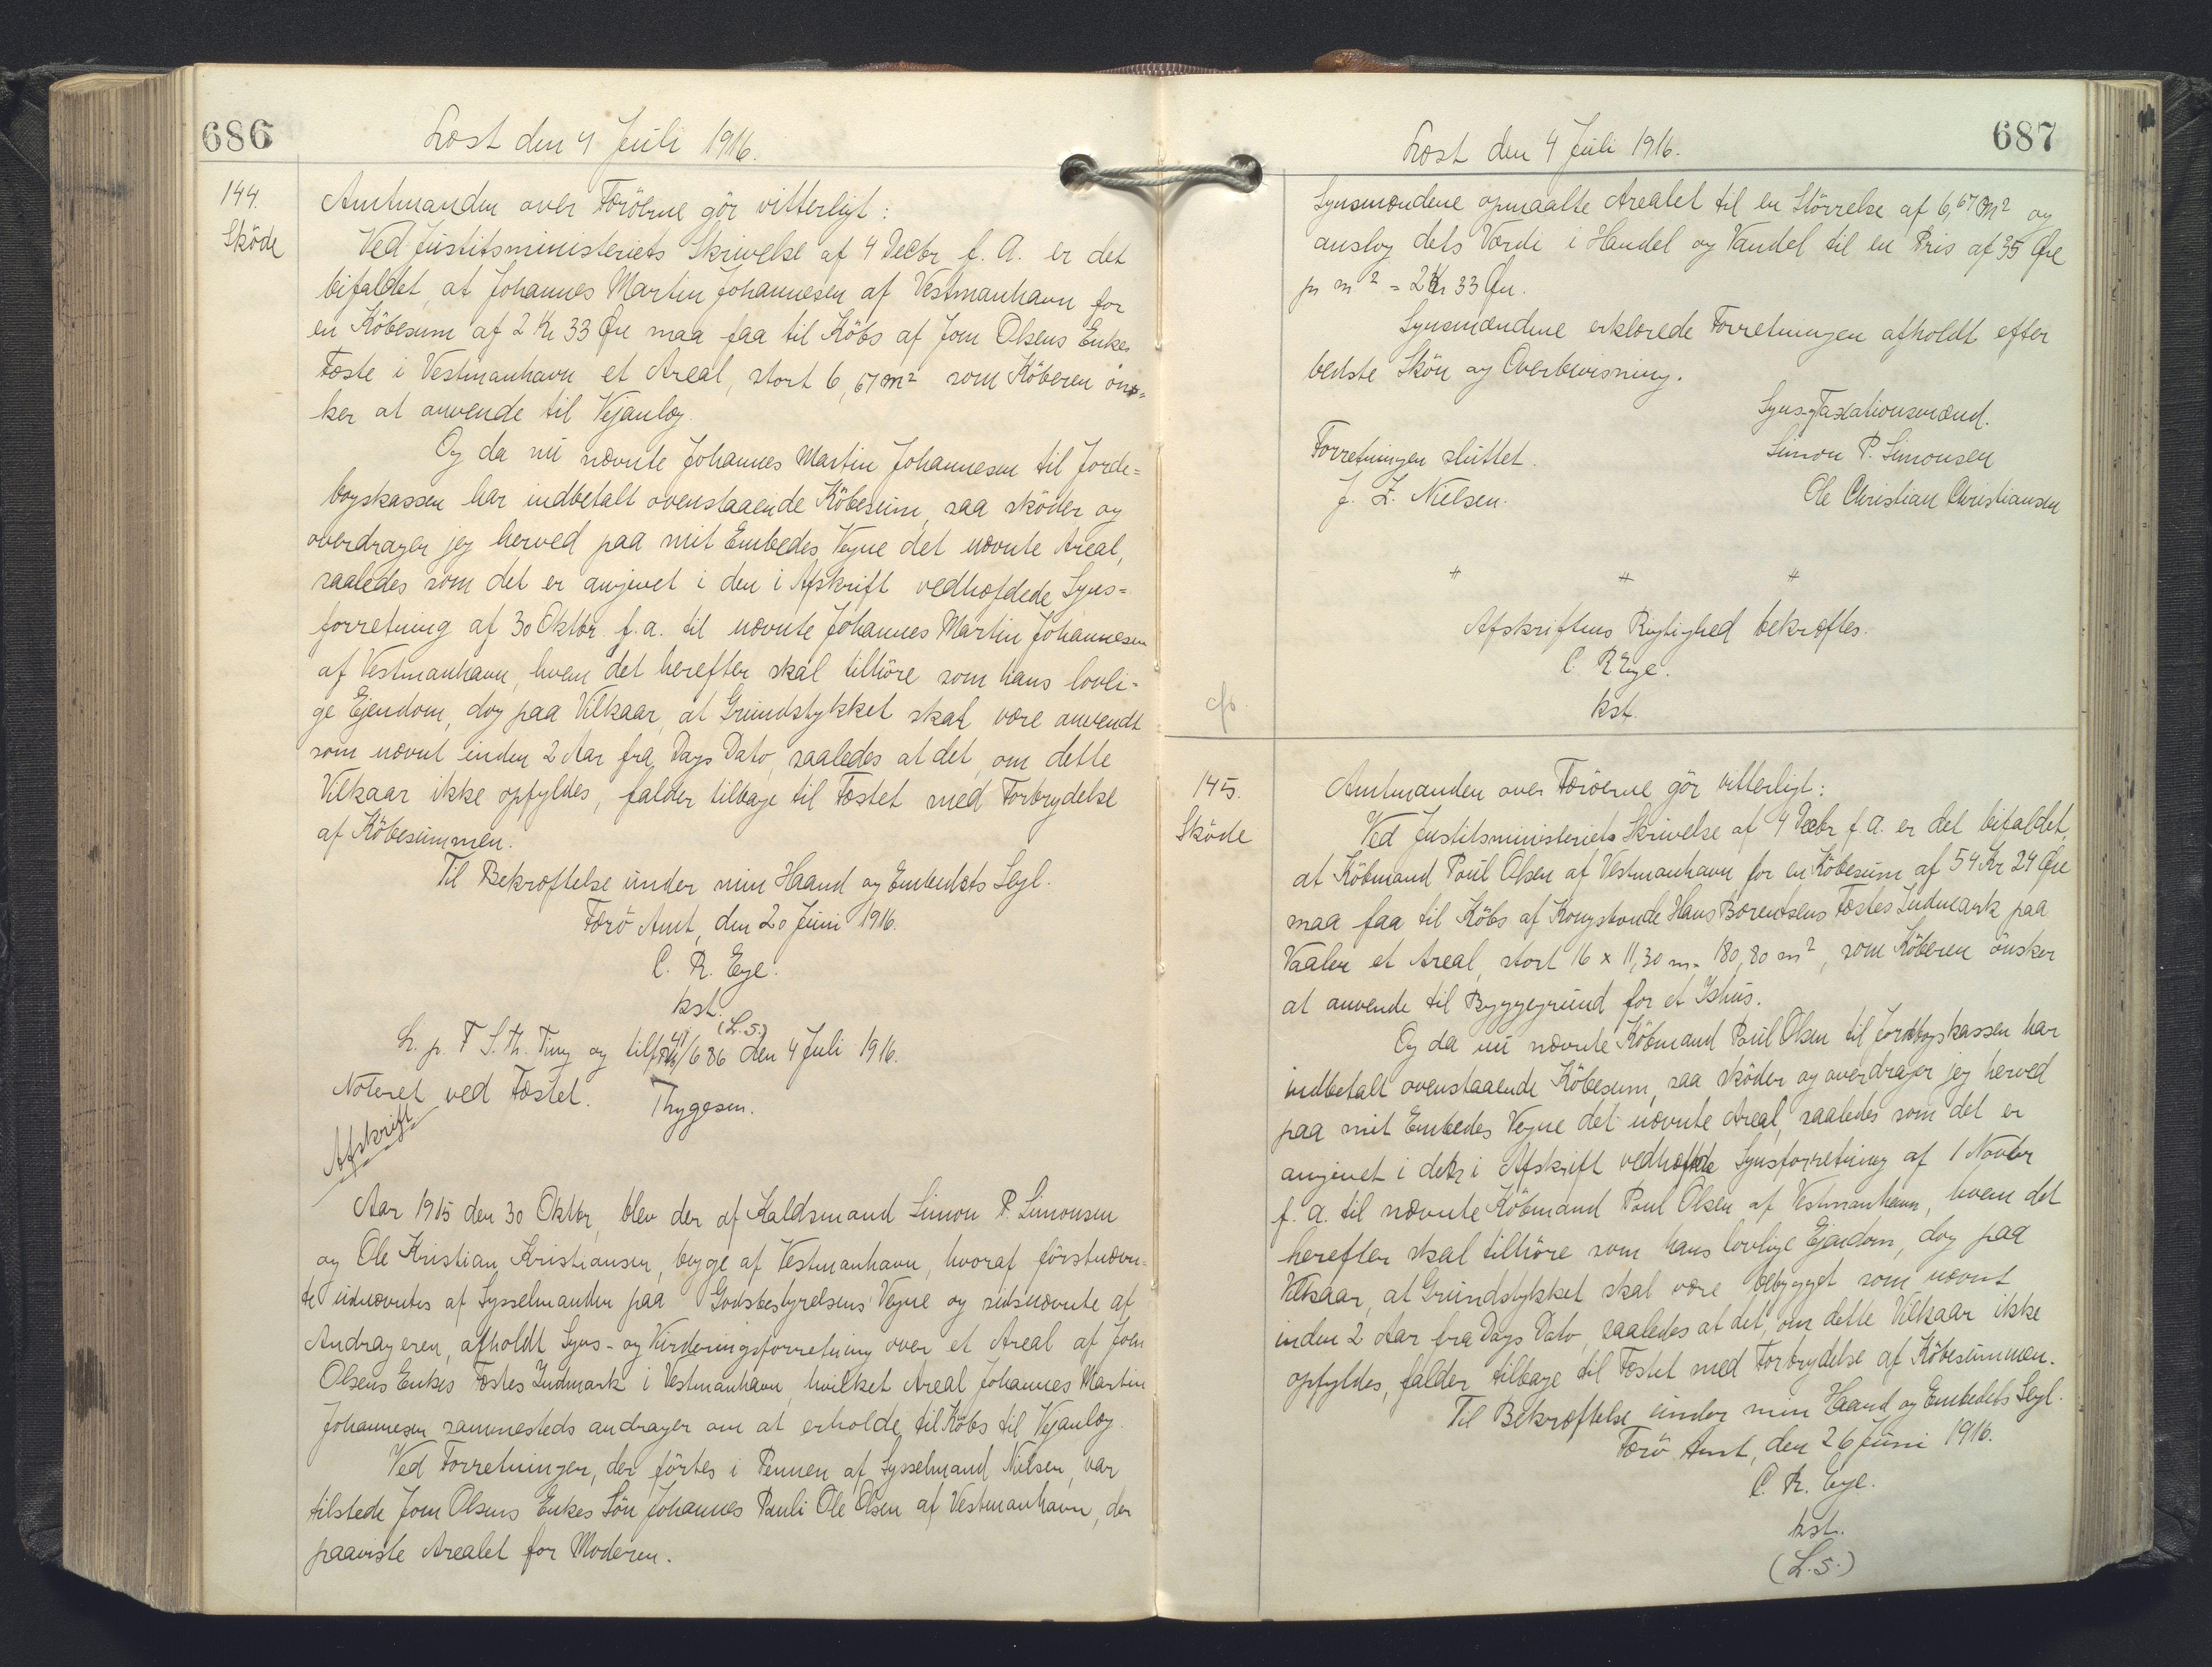 686
Læst den 4 Juli 1916.
144.
Sköde
Amtmanden over Færöerne gör vitterligt:
Ved Justitsministeriets Skrivelse af 4 Decbr f. A. er det
bifaldet, at Johannes Martin Johannesen af Vestmanhavn for
en Köbesum af 2 Kr 33 Øre maa faa til Köbs af Jom Olsens Enkes
Fæste i Vestmanhavn et Areal, stort 6,67 m² som Köberen öns-
ker at anvende til Vejanlæg.
Og da nu nævnte Johannes Martin Johannesen til Jorde-
bogskassen har indbetalt ovenstaaende Köbesum, saa sköder og
overdrager jeg herved paa mit Embedes Vegne det nævnte Areal,
saaledes som det er angivet i den i Afskrift vedhæftede Syns-
forretning af 30 Oktbr f. a. til nævnte Johannes Martin Johannesen
af Vestmanhavn, hvem det herefter skal tilhöre som hans lovli-
ge Ejendom, dog paa Vilkaar, at Grundstykket skal være anvendt
som nævnt inden 2 Aar fra Dags Dato, saaledes at det, om dette
Vilkaar ikke opfyldes, falder tilbage til Fæstet med Forbrydelse
af Köbesummen.
Til Bekræftelse under min Haand og Embedets Segl.
Færö Amt, den 20 Juni 1916.
C. R. Eye.
kst.
(L.S.)
L. p. F S. Th. Ting og tilf. 686 den 4 Juli 1916.
Noteret ved Fæstet. Thygesen.
Afskrift
Aar 1915 den 30 Oktbr, blev der af Kaldsmand Simon P. Simonsen
og Ole Kristian Kristiansen, begge af Vestmanhavn, hvoraf förstnævn-
te udnævntes af Sysselmanden paa Godsbestyrelsens Vegne og sidsnævnte af
Andrageren, afholdt Syns- og Vurderingsforretning over et Areal af Jom
Olsens Enkes Fæstes Indmark i Vestmanhavn, hvilket Areal Johannes Martin
Johannesen sammesteds andrager om at erholde til Köbs til Vejanlæg.
Ved Forretningen, der förtes i Pennen af Sysselmand Nielsen, var
tilstede Jom Olsens Enkes Sön Johannes Pauli Ole Olsen af Vestmanhavn, der
paaviste Arealet for Moderen.
687
Læst den 4 Juli 1916.
Synsmændene opmaalte Arealet til en Störrelse af 6,67 m² og
anslog dets Værdi i Handel og Vandel til en Pris af 35 Øre
pr m² = 2 Kr 33 Øre.
Synsmændene erklærede Forretningen afholdt efter
bedste Skön og Overbevisning.
Syns og Taxationsmænd.
Forretningen sluttet. Simon P. Simonsen
J. Z. Nielsen. Ole Christian Christiansen
Afskriftens Rigtighed bekræftes.
C. R Eye.
kst.
cfr.
145.
Sköde
Amtmanden over Færöerne gör vitterligt:
Ved Justitsministeriets Skrivelse af 4 Decbr f. a. er det bifaldet,
at Köbmand Poul Olsen af Vestmanhavn for en Köbesum af 54 Kr 24 Øre
maa faa til Köbs af Kongsbonde Hans Børentsens Fæstes Indmark paa
Vaalen et Areal, stort 16 x 11,30 m = 180,80 m², som Köberen önsker
at anvende til Byggegrund for et Ishus.
Og da nu nævnte Köbmand Poul Olsen til Jordebogskassen har
indbetalt ovenstaaende Köbesum, saa sköder og overdrager jeg herved
paa mit Embedes Vegne det nævnte Areal, saaledes som det er
angivet i den i Afskrift vedhæftede Synsforretning af 1 Novbr
f. a. til nævnte Köbmand Poul Olsen af Vestmanhavn, hvem det
herefter skal tilhöre som hans lovlige Ejendom, dog paa
Vilkaar, at Grundstykket skal være bebygget som nævnt
inden 2 Aar fra Dags Dato, saaledes at det, om dette Vilkaar ikke
opfyldes, falder tilbage til Fæstet med Forbrydelse af Köbesummen.
Til Bekræftelse under min Haand og Embedets Segl.
Færö Amt, den 26 Juni 1916.
C. R. Eye.
kst.
(L.S.)